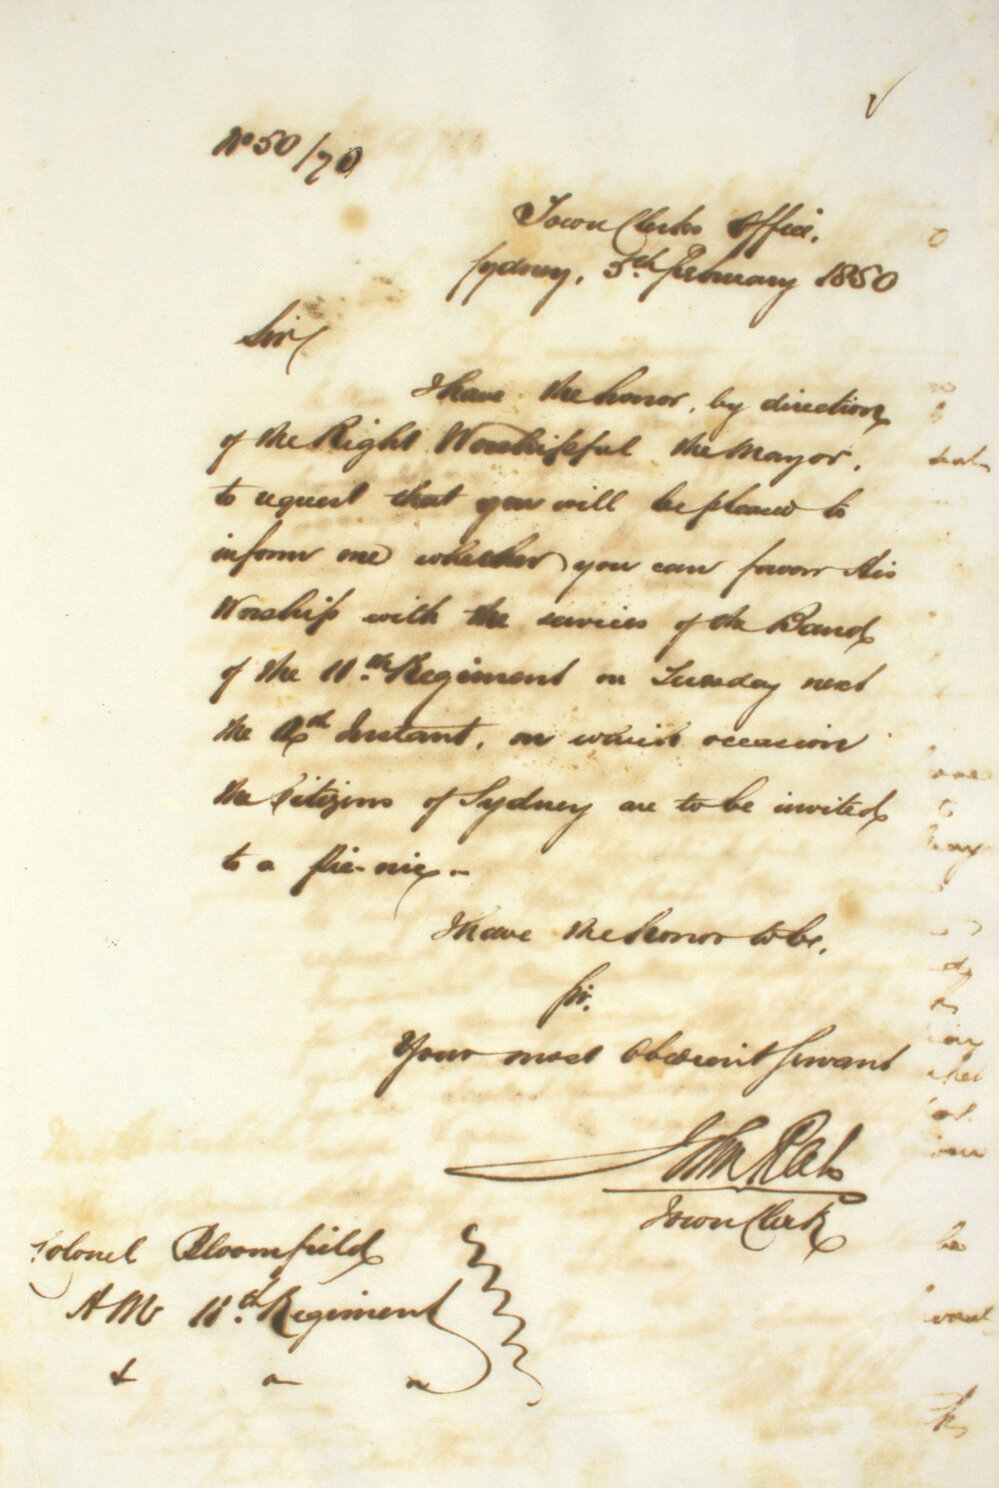 No 50/70
Town Clerks Office,
Sydney, 5th February 1850
Sir
I have the honor, by direction
of the Right Worshipful the Mayor,
to request that you will be pleased to
inform me whether you can favor His
Worship with the services of the Band
of the 11th Regiment on Tuesday next
the Instant, on which occasion
the Citizens of Sydney are to be invited
to a Pic-nic.-
I have the honor to be,
Sir.
Your most Obedient Servant
John Rae
Town Clerk
Colonel Bloomfield
H M 11th Regiment